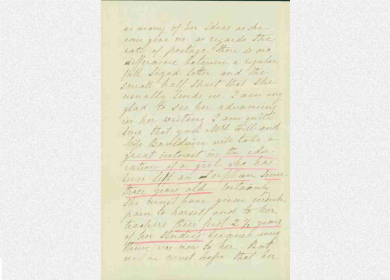 as many of her ideas as she
can give me. as regards the
rate of postage there is no
difference between a regular
full sized letter, and the
small half sheet that she
usually sends us. I am very
glad to see her advancing
in her writing I am quite
sure that you Mrs. Hill and
Miss Davidson will take a
great interest in the edu-
cation of a girl who has
been left an orphan some
three years old. Certainly
she must have given much
pain to herself and to her
teachers these past 2 ½ years
of her studies
them was new to her. But
we must hope that her